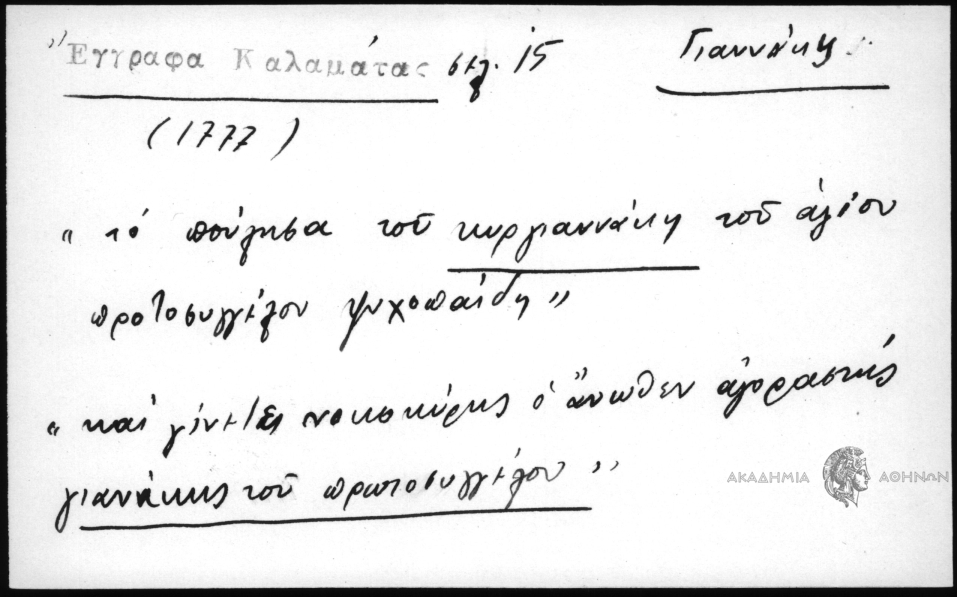 Ἔγγραφα Καλαμάτας σελ. 15
Γιαννάκης
(1777)
„ τό πούλησα τοῦ κυργιαννάκη τοῦ ἁγίου
προτοσυγγέλου ψυχοπαίδη”
„ καί γίνεται νοικοκύρης ὁ ἄνωθεν ἀγοραστής
γιανάκης τοῦ πρωτοσυγγέλου ”
ΑΚΑΔΗΜΙΑ ΑΘΗΝΩΝ